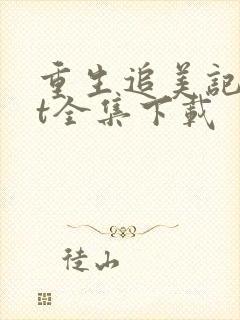 重生追美记
t全集下载
徒山